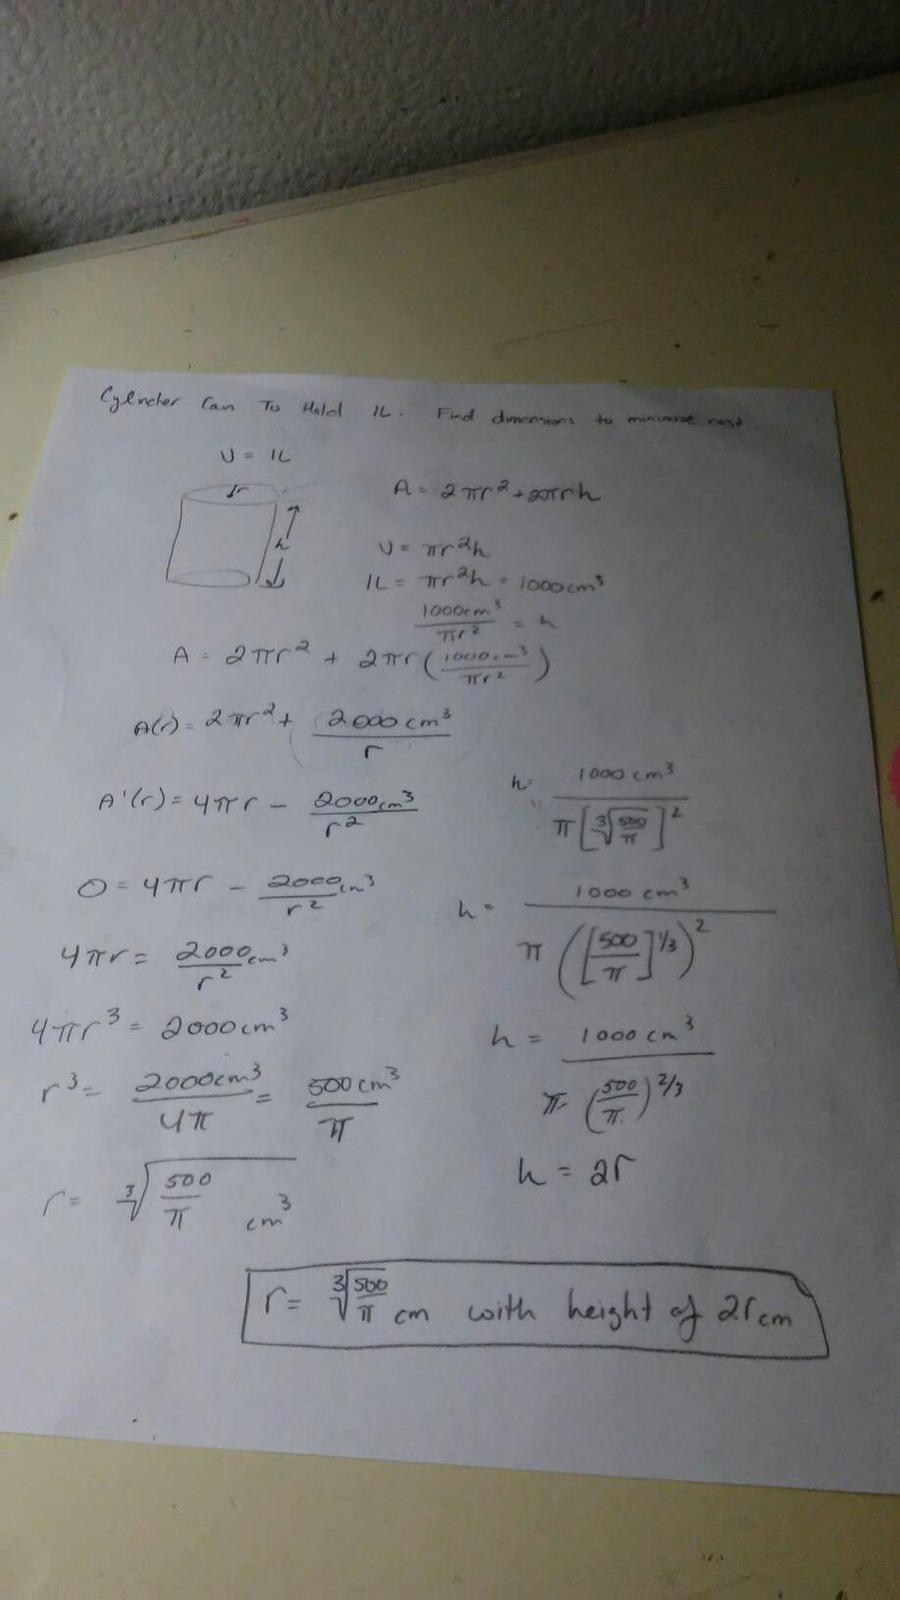 Cylinder Can To Hold 1L. Find dimensions to minimize cost
V = 1L
r
h
A = 2πr² + 2πrh
V = πr²h
1L = πr²h = 1000cm³
1000cm³/πr² = h
A = 2πr² + 2πr(1000cm³/πr²)
A(r) = 2πr² + 2000cm³/r
A'(r) = 4πr - 2000cm³/r²
0 = 4πr - 2000/r² cm³
4πr = 2000/r² cm³
4πr³ = 2000cm³
r³ = 2000cm³/4π = 500cm³/π
r = ∛(500/π cm³)
h = 1000cm³/π[∛(500/π)]²
h = 1000cm³/π([500/π]^1/3)²
h = 1000cm³/π(500/π)^2/3
h = 2r
r = ∛(500/π) cm with height of 2r cm